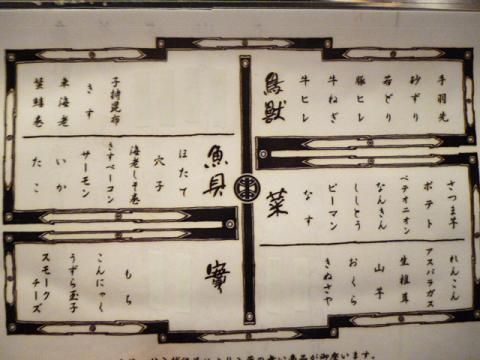 鳥獣
手羽先
砂ずり
若どり
豚ヒレ
牛ねぎ
牛ヒレ
菜
さつま芋
ポテト
ペテオニオン
なんきん
ししとう
ピーマン
なす
れんこん
アスパラガス
生椎茸
山芋
おくら
きぬさや
魚貝
子持昆布
きす
車海老
蟹蜂巻
ほたて
穴子
海老しそ巻
きすベーコン
サーモン
いか
たこ
もち
こんにゃく
うずら玉子
スモークチーズ